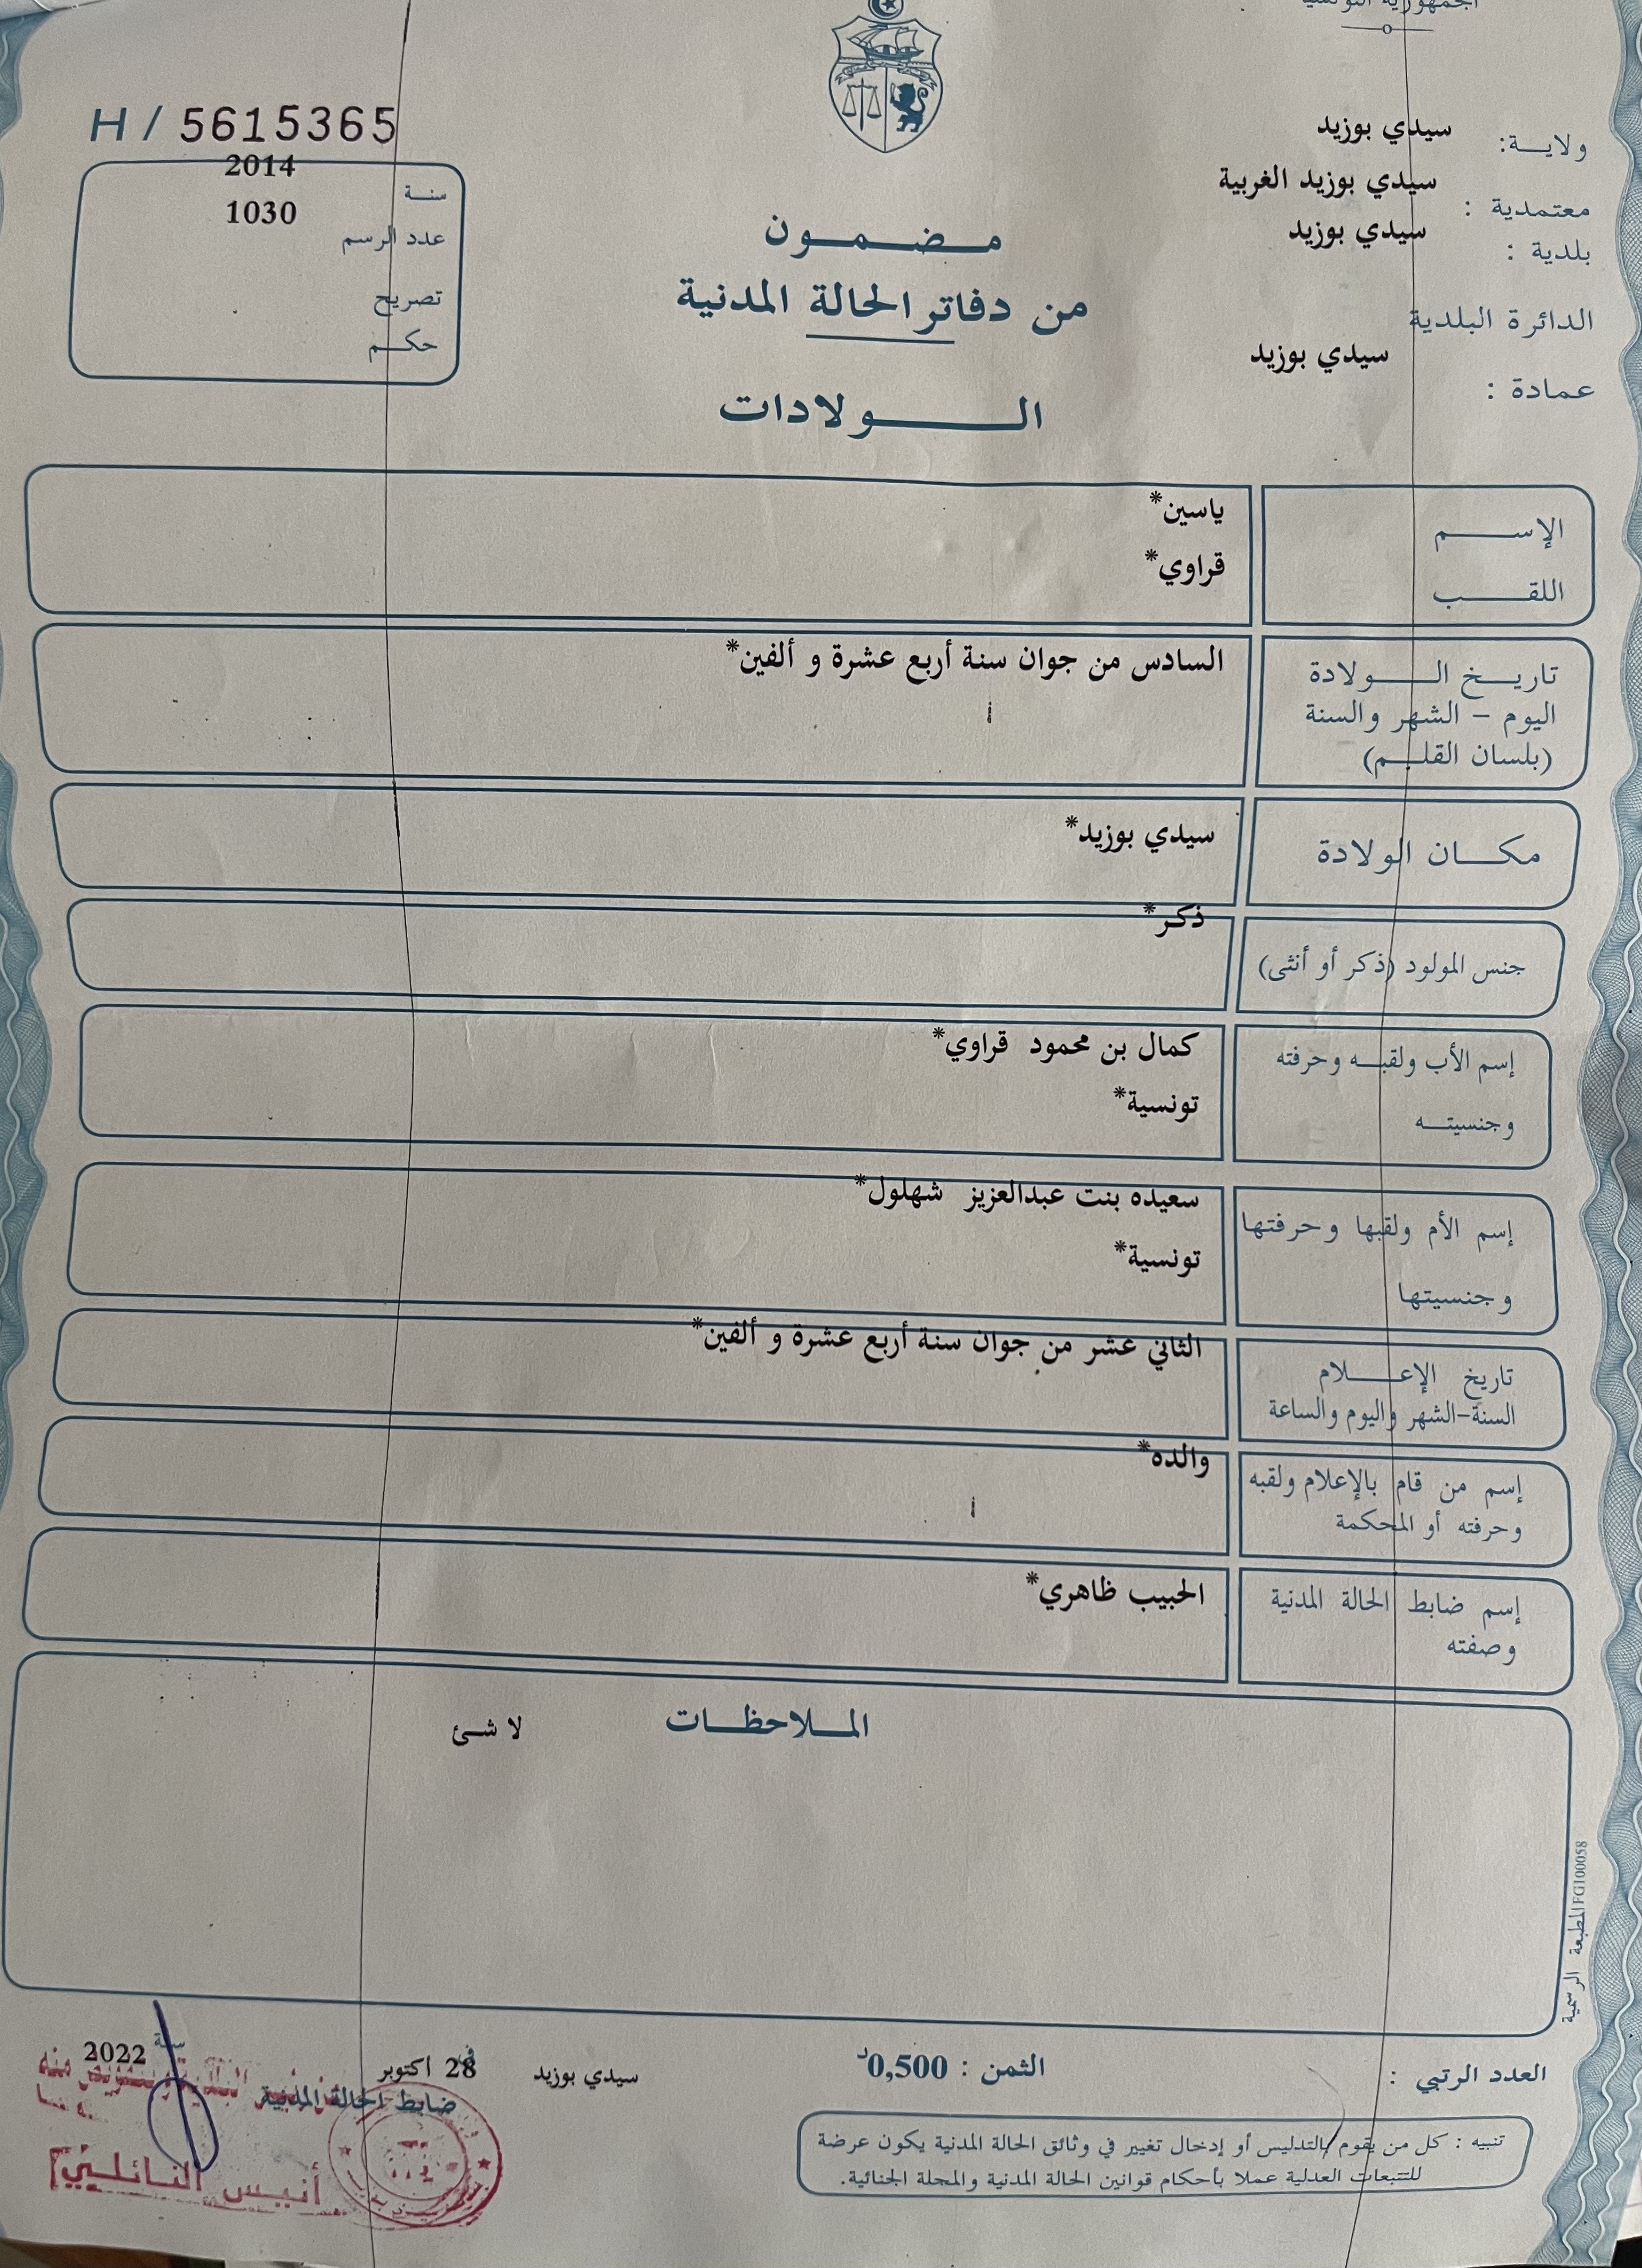 الجمهورية التونسية
H / 5615365
سنة 2014
عدد الرسم 1030
تصريح
حكم
ولاية: سيدي بوزيد
معتمدية : سيدي بوزيد الغربية
بلدية : سيدي بوزيد
الدائرة البلدية
عمادة : سيدي بوزيد
مضمون
من دفاتر الحالة المدنية
الولادات
الإسم ياسين*
اللقب قراوي*
تاريخ الولادة السادس من جوان سنة أربع عشرة و ألفين*
اليوم - الشهر والسنة
(بلسان القلم)
مكان الولادة سيدي بوزيد*
جنس المولود (ذكر أو أنثى) ذكر*
إسم الأب ولقبه وحرفته كمال بن محمود قراوي*
وجنسيته تونسية*
إسم الأم ولقبها وحرفتها سعيده بنت عبدالعزيز شهلول*
وجنسيتها تونسية*
تاريخ الإعلام الثاني عشر من جوان سنة أربع عشرة و ألفين*
السنة-الشهر واليوم والساعة
إسم من قام بالإعلام ولقبه والده*
وحرفته أو المحكمة
إسم ضابط الحالة المدنية الحبيب ظاهري*
وصفته
الملاحظات لا شئ
المطبعة الرسمية FG100058
العدد الرتبي :
الثمن : 0,500د
سيدي بوزيد في 28 اكتوبر سنة 2022
ضابط الحالة المدنية
أنيس النائلي
تنبيه : كل من يقوم بالتدليس أو إدخال تغيير في وثائق الحالة المدنية يكون عرضة
للتتبعات العدلية عملا بأحكام قوانين الحالة المدنية والمجلة الجنائية.